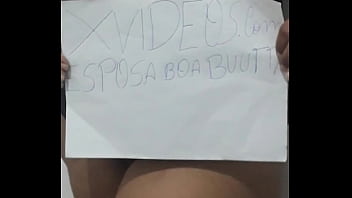 XVIDEOS.Com
ESPOSA BOA BUUTT